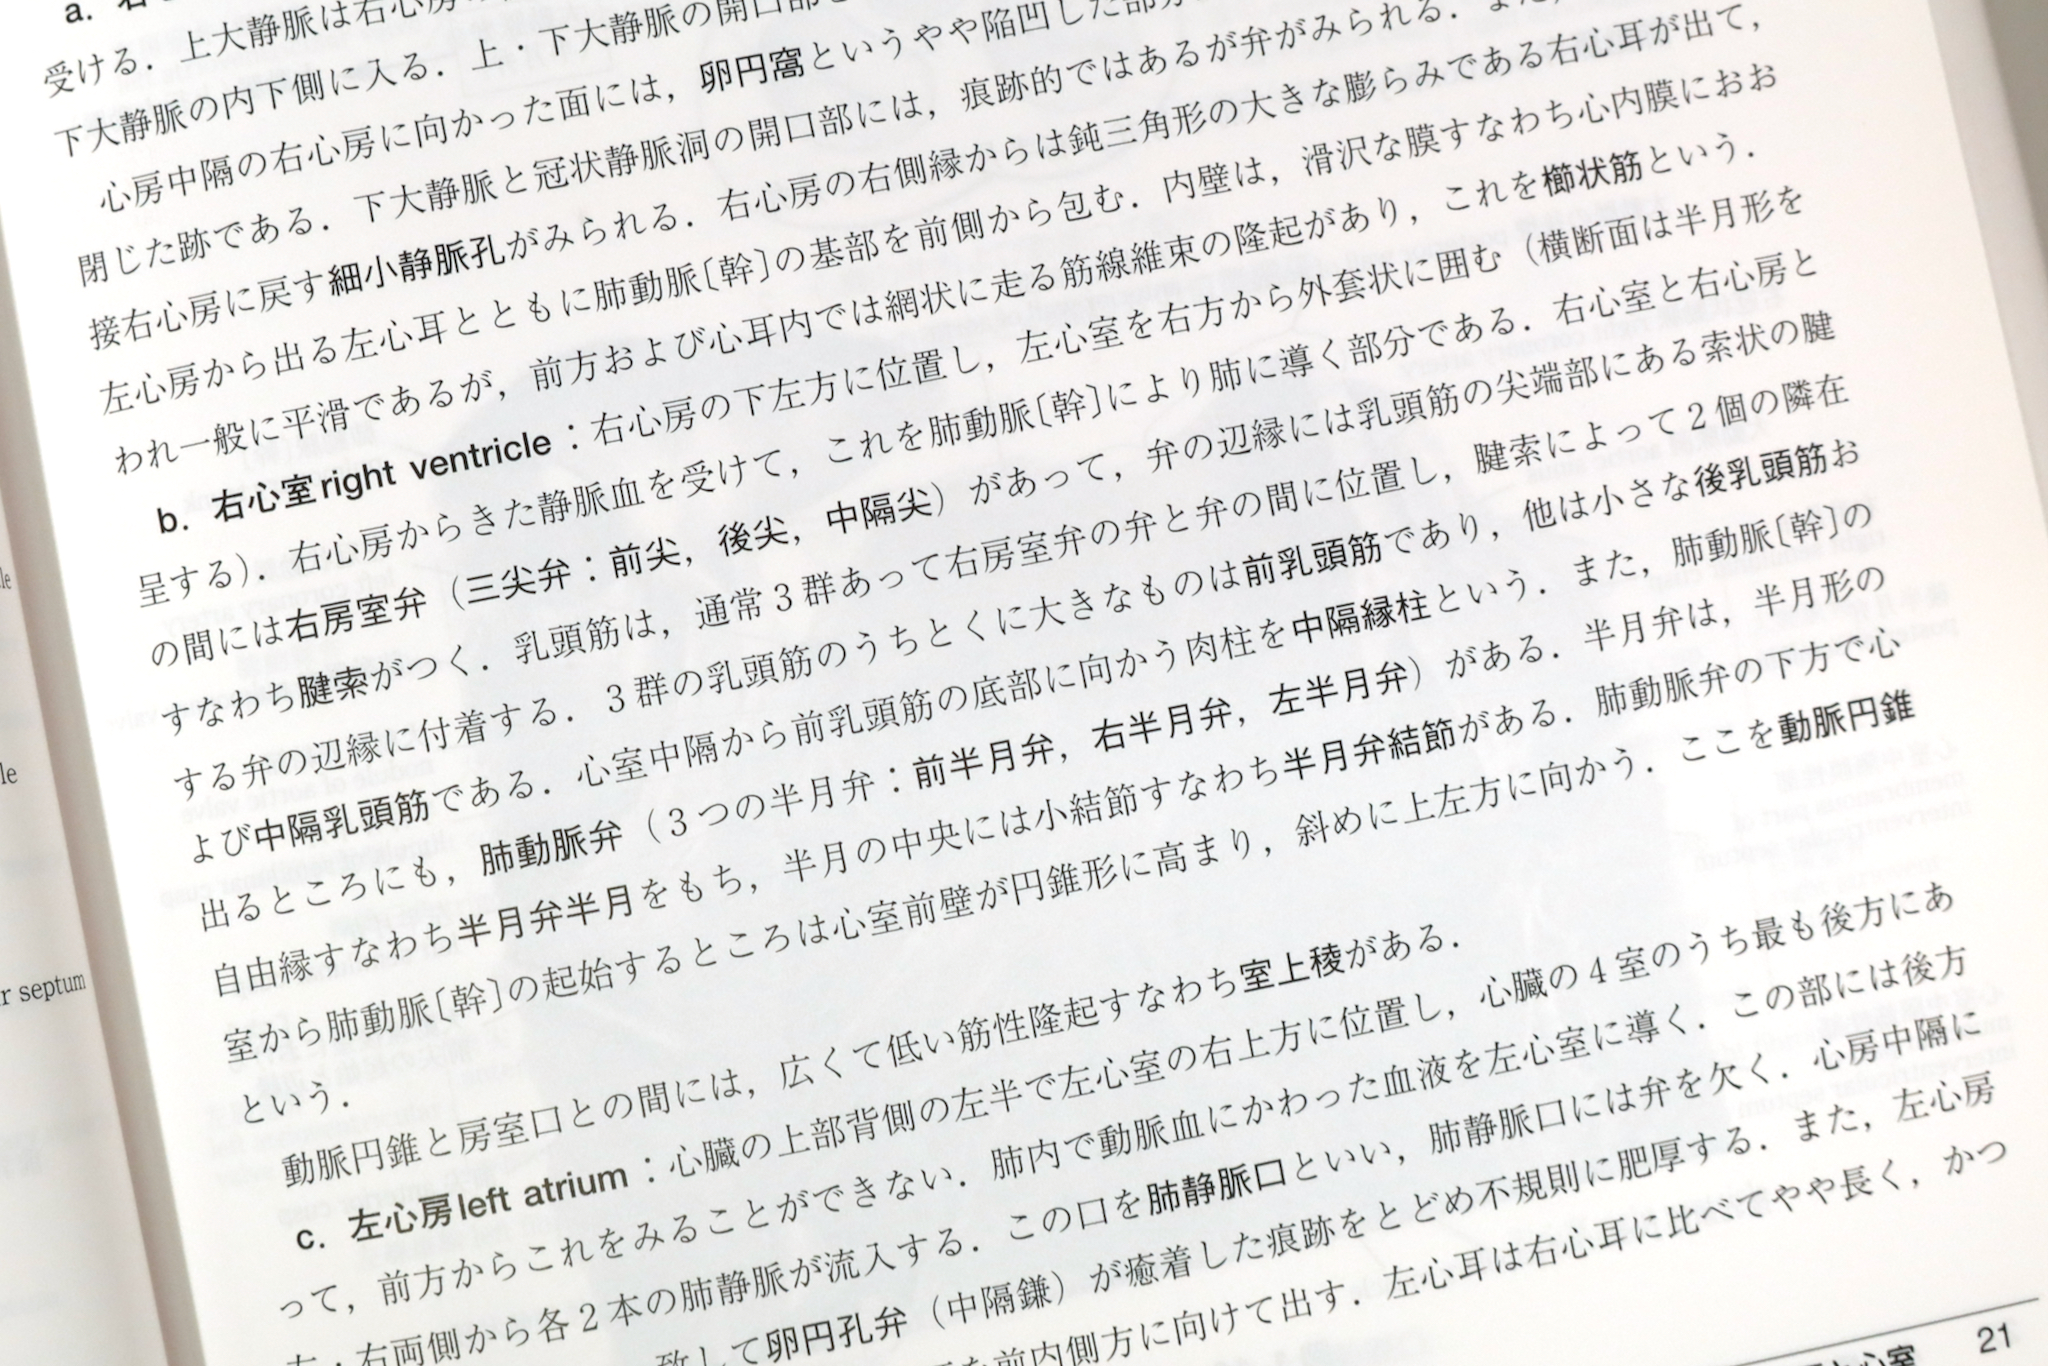 a. 右
受ける．上大静脈は右心房の
下大静脈の内下側に入る．上・下大静脈の開口部
心房中隔の右心房に向かった面には，卵円窩というやや陥凹した部分
閉じた跡である．下大静脈と冠状静脈洞の開口部には，痕跡的ではあるが弁がみられる．また，
接右心房に戻す細小静脈孔がみられる．右心房の右側縁からは鈍三角形の大きな膨らみである右心耳が出て，
左心房から出る左心耳とともに肺動脈〔幹〕の基部を前側から包む．内壁は，滑沢な膜すなわち心内膜におお
われ一般に平滑であるが，前方および心耳内では網状に走る筋線維束の隆起があり，これを櫛状筋という．
b. 右心室right ventricle：右心房の下左方に位置し，左心室を右方から外套状に囲む（横断面は半月形を
呈する）．右心房からきた静脈血を受けて，これを肺動脈〔幹〕により肺に導く部分である．右心室と右心房と
の間には右房室弁（三尖弁：前尖，後尖，中隔尖）があって，弁の辺縁には乳頭筋の尖端部にある索状の腱
すなわち腱索がつく．乳頭筋は，通常3群あって右房室弁の弁と弁の間に位置し，腱索によって2個の隣在
する弁の辺縁に付着する．3群の乳頭筋のうちとくに大きなものは前乳頭筋であり，他は小さな後乳頭筋お
よび中隔乳頭筋である．心室中隔から前乳頭筋の底部に向かう肉柱を中隔縁柱という．また，肺動脈〔幹〕の
出るところにも，肺動脈弁（3つの半月弁：前半月弁，右半月弁，左半月弁）がある．半月弁は，半月形の
自由縁すなわち半月弁半月をもち，半月の中央には小結節すなわち半月弁結節がある．肺動脈弁の下方で心
室から肺動脈〔幹〕の起始するところは心室前壁が円錐形に高まり，斜めに上左方に向かう．ここを動脈円錐
という．
動脈円錐と房室口との間には，広くて低い筋性隆起すなわち室上稜がある．
c. 左心房left atrium：心臓の上部背側の左半で左心室の右上方に位置し，心臓の4室のうち最も後方にあ
って，前方からこれをみることができない．肺内で動脈血にかわった血液を左心室に導く．この部には後方
左・右両側から各2本の肺静脈が流入する．この口を肺静脈口といい，肺静脈口には弁を欠く．心房中隔に
致して卵円孔弁（中隔鎌）が癒着した痕跡をとどめ不規則に肥厚する．また，左心房
を前内側方に向けて出す．左心耳は右心耳に比べてやや長く，かつ
心室 21
r septum